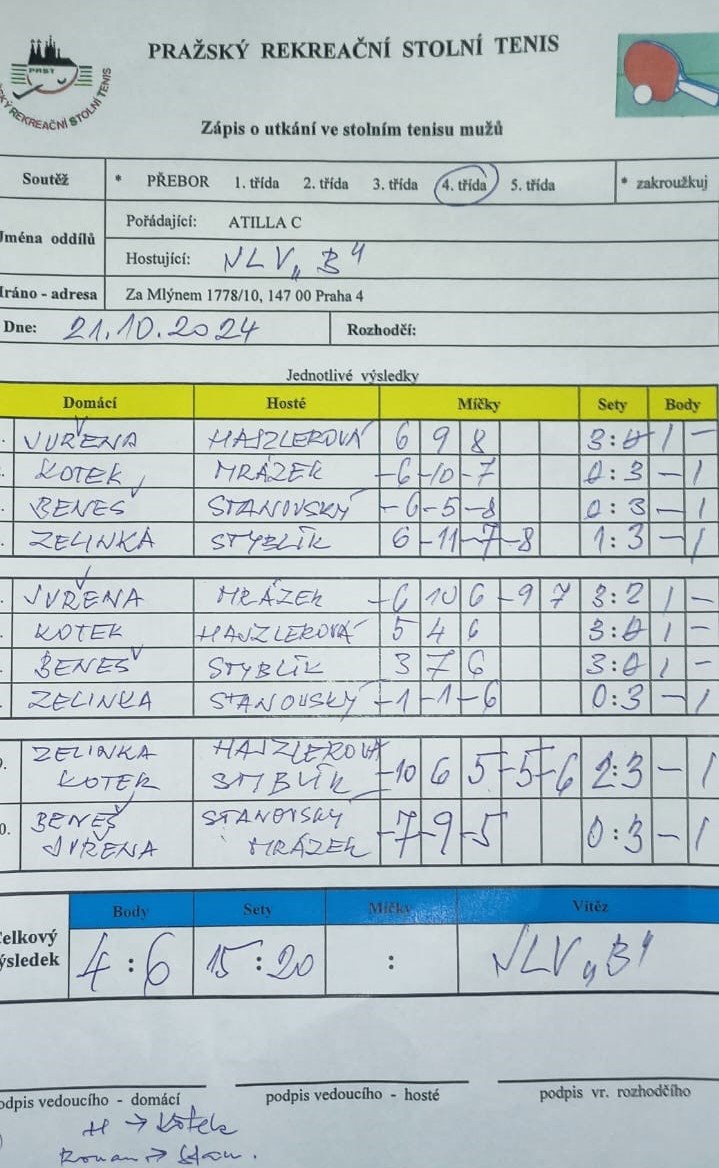 PRAŽSKÝ REKREAČNÍ STOLNÍ TENIS
PRST
KÝ REKREAČNÍ STOLNÍ TENIS
Zápis o utkání ve stolním tenisu mužů
Soutěž * PŘEBOR 1. třída 2. třída 3. třída 4. třída 5. třída * zakroužkuj
Jména oddílů
Pořádající: ATILLA C
Hostující: NLV „B"
Hráno - adresa Za Mlýnem 1778/10, 147 00 Praha 4
Dne: 21.10.2024 Rozhodčí:
Jednotlivé výsledky
Domácí Hosté Míčky Sety Body
. JVŘENA HAJZLEROVÁ 6 9 8 3:0 1 -
. KOTEK MRÁZEK -6 -10 -7 0:3 - 1
. BENEŠ STANOVSKÝ -6 -5 -8 0:3 - 1
. ZELINKA STYBLÍK 6 -11 -7 -8 1:3 - 1
. JVŘENA MRÁZEK -6 10 6 -9 7 3:2 1 -
. KOTEK HAJZLEROVÁ 5 4 6 3:0 1 -
. BENEŠ STYBLÍK 3 7 6 3:0 1 -
. ZELINKA STANOVSKÝ -1 -1 -6 0:3 - 1
9. ZELINKA HAJZLEROVÁ
KOTEK STYBLÍK -10 6 5 -5 -6 2:3 - 1
0. BENEŠ STANOVSKY
JVŘENA MRÁZEK -7 -9 -5 0:3 - 1
Body Sety Míčky Vítěz
Celkový
výsledek 4:6 15:20 : NLV „B"
odpis vedoucího - domácí podpis vedoucího - hosté podpis vr. rozhodčího
H → Kotek
Roman →